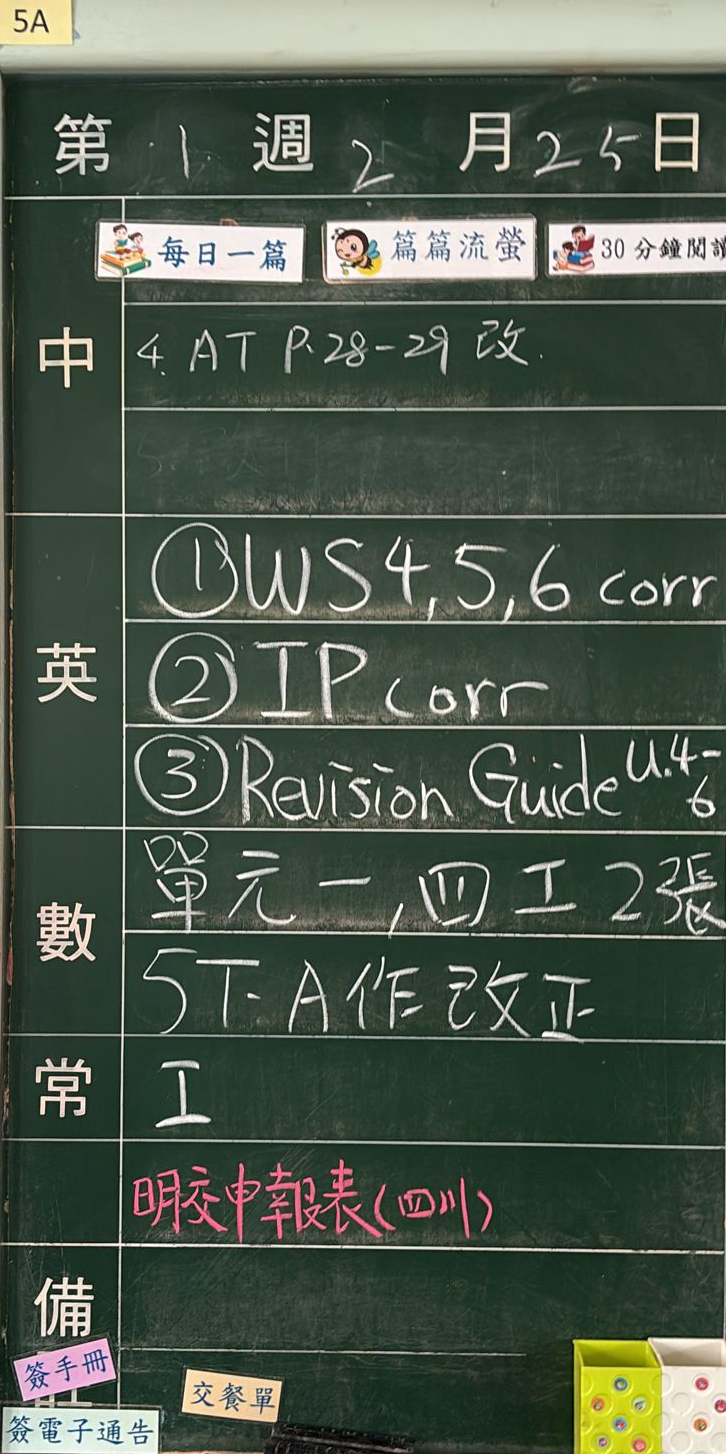 5A
第 1 週 2 月 25 日
每日一篇 篇篇流螢 30 分鐘閱讀
中
4. AT P.28-29 改.
英
①WS4,5,6 corr
② IP corr
③Revision Guide U.4-6
數
單元一,四工2張
5下A作改正
常
工
明交申報表(四川)
備
簽手冊
交餐單
簽電子通告